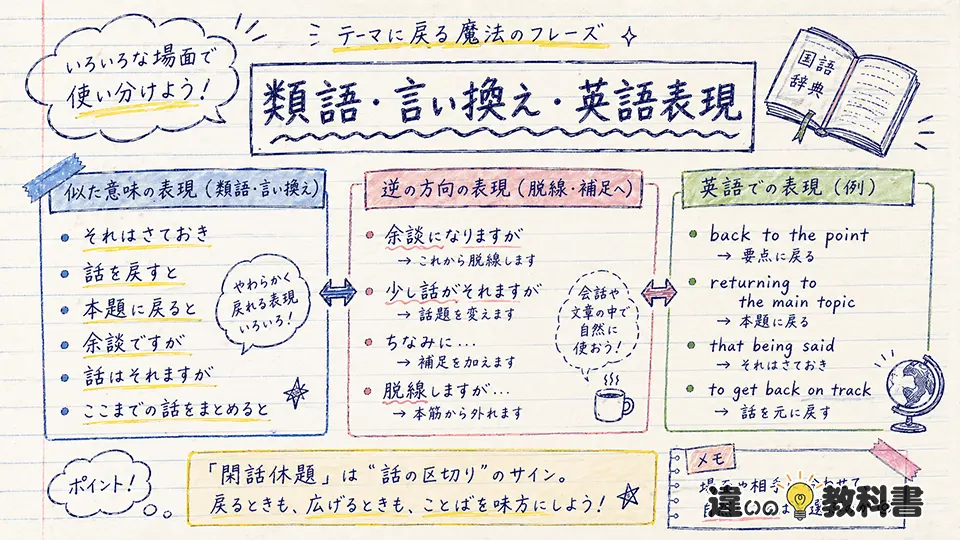 いろいろな場面で
使い分けよう！
テーマに戻る魔法のフレーズ
類語・言い換え・英語表現
国語
辞典
似た意味の表現（類語・言い換え）
それはさておき
話を戻すと
本題に戻ると
余談ですが
話はそれますが
ここまでの話をまとめると
やわらかく
戻れる表現
いろいろ！
逆の方向の表現（脱線・補足へ）
余談になりますが
→ これから脱線します
少し話がそれますが
→ 話題を変えます
ちなみに...
→ 補足を加えます
脱線しますが...
→ 本筋から外れます
会話や
文章の中で
自然に
使おう！
英語での表現（例）
back to the point
→ 要点に戻る
returning to
the main topic
→ 本題に戻る
that being said
→ それはさておき
to get back on track
→ 話を元に戻す
ポイント！
「閑話休題」は“話の区切り”のサイン。
戻るときも、広げるときも、ことばを味方にしよう！
メモ
違いの教科書